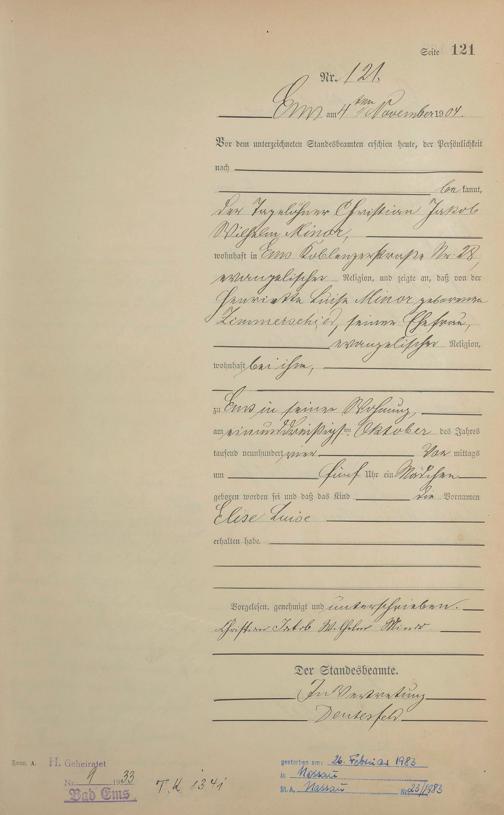 Seite 121
Nr. 121.
Ems am 4ten November 1904.
Vor dem unterzeichneten Standesbeamten erschien heute, der Persönlichkeit
nach
bekannt,
der Tagelöhner Christian Jakob
Wilhelm Minor,
wohnhaft in Ems Koblenzerstraße Nr 28,
evangelischer Religion, und zeigte an, daß von der
Henriette Luise Minor geborenen
Zimmerschied, seiner Ehefrau,
evangelischer Religion,
wohnhaft bei ihm,
zu Ems in seiner Wohnung,
am einunddreißigten Oktober des Jahres
tausend neunhundert vier Vor mittags
um fünf Uhr ein Mädchen
geboren worden sei und daß das Kind die Vornamen
Elise Luise
erhalten habe.
Vorgelesen, genehmigt und unterschrieben.
Christian Jakob Wilhelm Minor
Der Standesbeamte.
In Vertretung
Form. A.
H. Geheiratet
Nr. 9 1933
Bad Ems
gestorben am: 26. Februar 1983
in Nassau
St.A. Nassau Nr. 23/1983